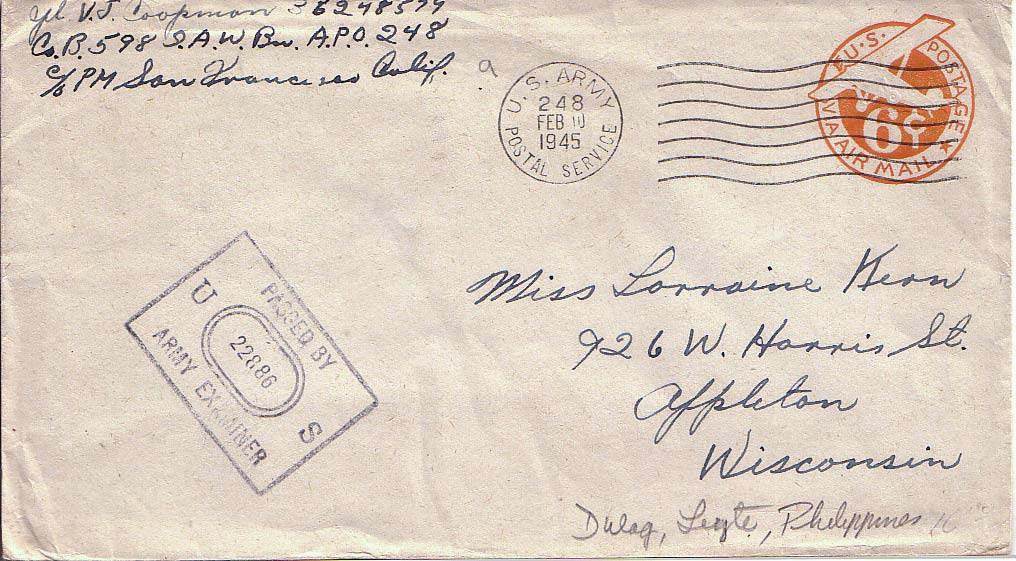 V.J. Coopman 36248579
Co.B. 598 S.A.W. Bn. A.P.O. 248
c/o PM San Francisco Calif.
a
U. S. ARMY
248
FEB 10
1945
POSTAL SERVICE
U.S. POSTAGE
6¢
VIA AIR MAIL
PASSED BY
U 22886 S
ARMY EXAMINER
Miss Lorraine Kern
926 W. Harris St.
Appleton
Wisconsin
Dulag, Leyte, Philippines